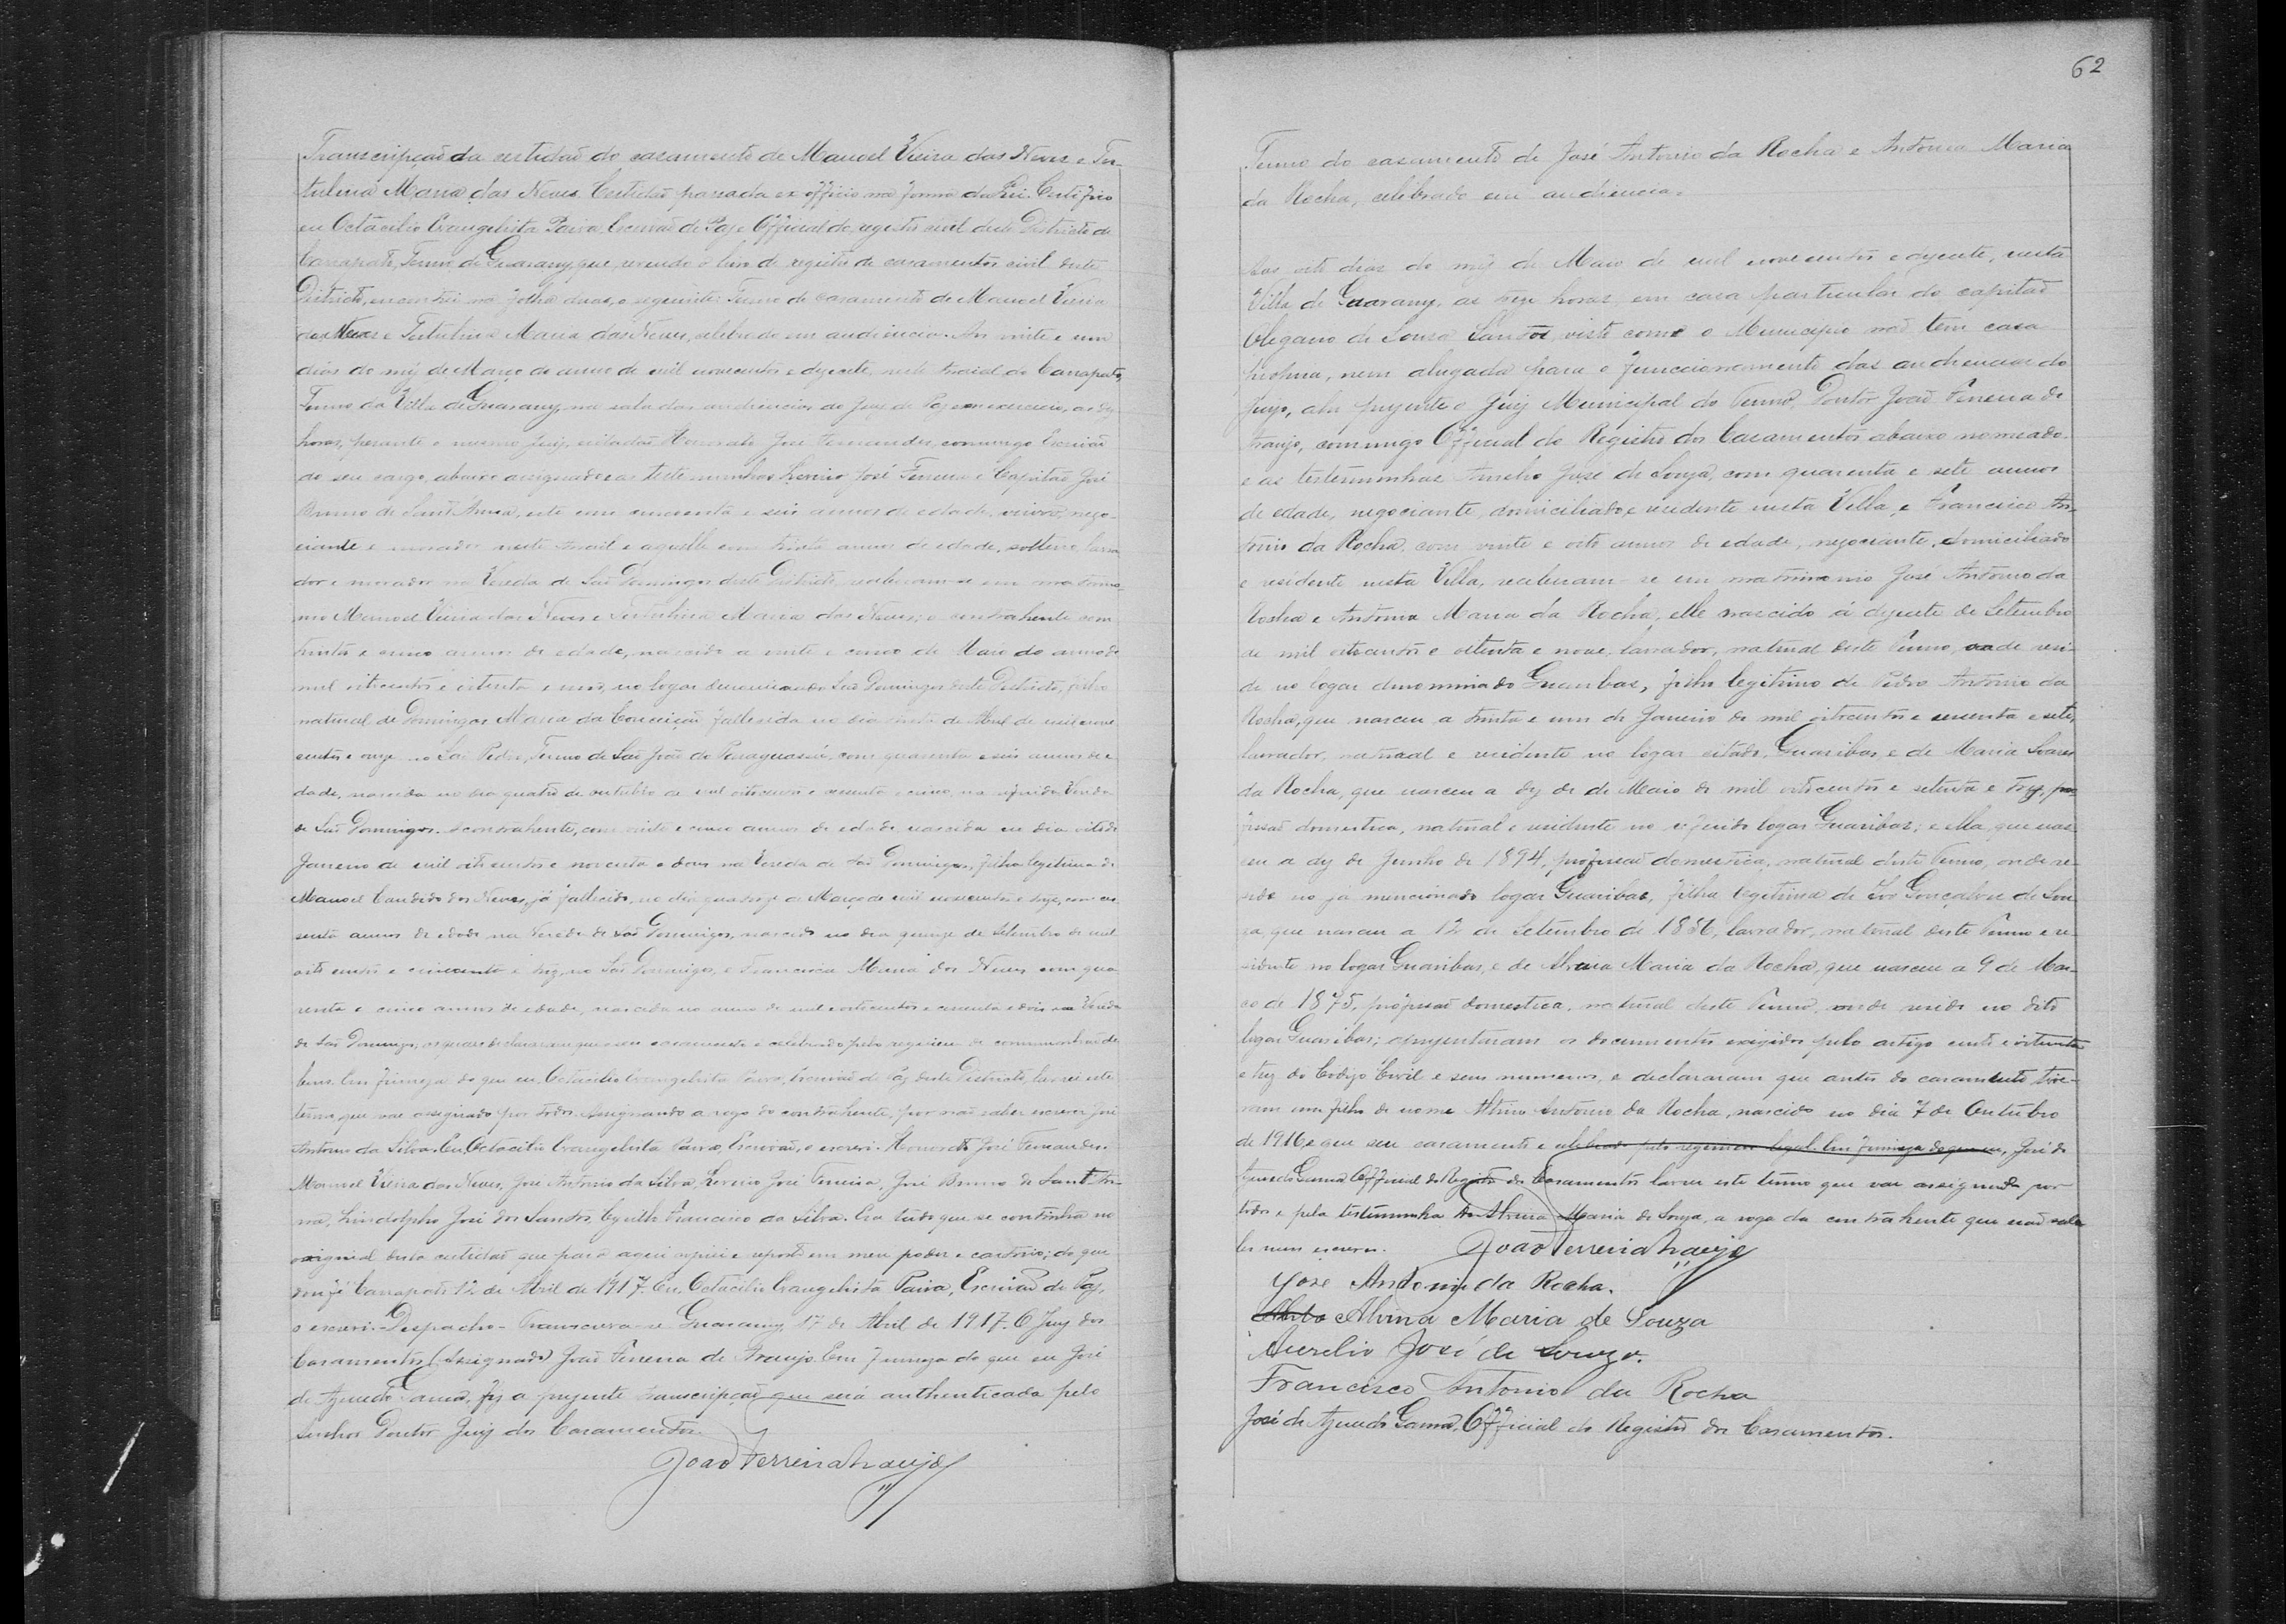 Transcripção da certidão do casamento de Manoel Vieira das Neves e Ter-
tulina Maria das Neves. Certidão passada ex officio na forma da Lei. Certifico
eu Octacilio Evangelista Paiva Escrivão de Paz e Official do registro civil deste Districto de
Carrapato, Termo de Guarany, que, revendo o livro de registro de casamentos civil deste
Districto, encontrei na folha duas, o seguinte: Termo de casamento de Manoel Vieira
das Neves e Tertulina Maria das Neves, celebrado em audiencia. Aos vinte e um
dias do mez de Março do anno de mil novecentos e dezesete, neste arraial do Carrapato,
Termo da Villa de Guarany, na sala das audiencias do Juiz de Paz em exercicio, as dez
horas, perante o mesmo Juiz, cidadão Honorato José Fernandes, commigo Escrivão
do seu cargo, abaixo assignado e as testemunhas Lerino José Ferreira e Capitão José
Bruno de Sant'Anna, este com cincoenta e seis annos de edade, viuvo, nego-
ciante e morador neste arraial e aquelle com trinta annos de edade, solteiro, lavra
dor e morador na Vereda de São Domingos deste Districto, receberam-se em matrimo-
nio Manoel Vieira das Neves e Tertulina Maria das Neves; o contrahente com
trinta e cinco annos de edade, nascido a vinte e cinco de Maio do anno de
mil oitocentos e oitenta e um, no logar denominado São Domingos deste Districto, filho
natural de Domingas Maria da Conceição fallecida no dia trinta de Abril de mil nove
centos e onze no São Pedro, Termo de São João do Paraguassú, com quarenta e seis annos de e
dade, nascida no dia quatro de outubro de mil oitocentos e sessenta e cinco, na referida Vereda
de São Domingos. A contrahente, com vinte e cinco annos de edade, nascida em dia oito de
Janeiro de mil oitocentos e noventa e dous na Vereda de São Domingos, filha legitima de
Manoel Candido das Neves, já fallecido, no dia quatorze de Março de mil novecentos e treze, com ses
senta annos de edade na Vereda de São Domingos, nascido no dia quinze de Setembro de mil
oito centos e cincoenta e trez, no São Domingos, e Francisca Maria das Neves com qua
renta e cinco annos de edade, nascida no anno de mil oitocentos e setenta e dois na Vereda
de São Domingos; os quaes declararam que seu casamento é celebrado pelo regimen de communhão de
bens. Em firmeza do que eu, Octacilio Evangelista Paiva, Escrivão de Paz deste Districto, lavrei este
termo que vae assignado por todos. Assignando a rogo do contrahente, por não saber escrever José
Antonio da Silva. Eu, Octacilio Evangelista Paiva, Escrivão, o escrevi. Honorato José Fernandes.
Manoel Vieira das Neves, José Antonio da Silva, Lerino José Ferreira, José Bruno de Sant'An-
na, Lindolpho José dos Santos, Francisco da Silva. Era tudo que se continha no
original desta certidão que para aqui copiei e reporto em meu poder e cartorio; do que
dou fé Carrapato 12 de Abril de 1917. Eu, Octacilio Evangelista Paiva, Escrivão de Paz,
o escrevi. - Despacho - Transcreva-se. Guarany, 17 de Abril de 1917. O Juiz dos
Casamentos (Assignado) João Ferreira de Araujo. Em firmeza do que eu José
de Azevedo Gama, fiz a prezente transcripção que será authenticada pelo
Senhor Doutor Juiz dos Casamentos.
João Ferreira Araujo
62
Termo do casamento de José Antonio da Rocha e Antonia Maria
da Rocha, celebrado em audiencia.
Aos oito dias do mez de Maio de mil novecentos e dezesete, nesta
Villa de Guarany, as trez horas, em casa particular do capitão
Olegario de Souza Santos, visto como o Municipio não tem casa
propria, nem alugada para o funccionamento das audiencias do
Juizo, ahi prezente o Juiz Municipal do Termo, Doutor João Ferreira de
Araujo, commigo Official do Registro dos Casamentos abaixo nomeado
e as testemunhas Aurelio José de Souza, com quarenta e sete annos
de edade, negociante, domiciliado e residente nesta Villa, e Francisco An-
tonio da Rocha, com vinte e oito annos de edade, negociante, domiciliado
e residente nesta Villa, receberam-se em matrimonio José Antonio da
Rocha e Antonia Maria da Rocha, elle nascido á dezesete de Setembro
de mil oitocentos e oitenta e nove, lavrador, natural deste Termo, onde resi-
de no logar denominado Guaribas, filho legitimo de Pedro Antonio da
Rocha, que nasceu a trinta e um de Janeiro de mil oitocentos e sessenta e sete,
lavrador, natural e residente no logar citado Guaribas, e de Maria Soares
da Rocha, que nasceu a dez de de Maio de mil oitocentos e setenta e trez, pro
fissão domestica, natural e residente no referido logar Guaribas; e ella, que nas
ceu a dez de Junho de 1894, profissão domestica, natural deste Termo, onde re-
side no já mencionado logar Guaribas, filha legitima de Ivo Gonçalves de Sou
za que nasceu a 12 de Setembro de 1856, lavrador, natural deste Termo e re-
sidente no logar Guaribas, e de Alvina Maria da Rocha, que nasceu a 9 de Mar-
ço de 1875, profissão domestica, natural deste Termo, onde reside no dito
logar Guaribas; aprezentaram os documentos exigidos pelo artigo cento e oitenta
e trez do Codigo Civil e seus numeros, e declararam que antes do casamento tive-
ram um filho de nome Altino Antonio da Rocha, nascido no dia 7 de Outubro
de 1916 e que seu casamento é celebrado pelo regimen legal. Em firmeza do que eu, José de
Azevedo Gama Official do Registro dos Casamentos lavrei este termo que vae assignado por
todos e pela testemunha Alvina Maria de Souza, a rogo da contrahente que não sabe
ler nem escrever. João Ferreira Araujo
José Antonio da Rocha.
Alvina Maria de Souza
Aurelio José de Souza.
Francisco Antonio da Rocha
José de Azevedo Gama, Official do Registro dos Casamentos.